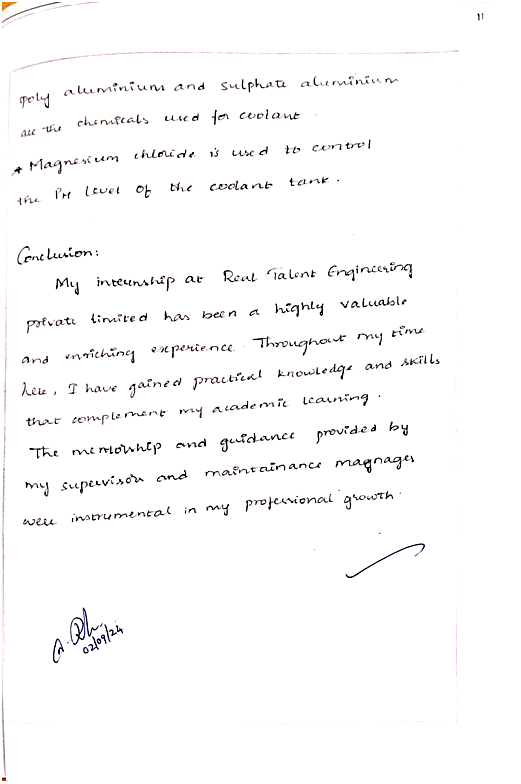 11
Poly aluminium and sulphate aluminium
are the chemicals used for coolant
* Magnesium chloride is used to control
the PH level of the coolant tank.
Conclusion:
My internship at Real Talent Engineering
private limited has been a highly valuable
and enriching experience. Throughout my time
here, I have gained practical knowledge and skills
that complement my academic learning.
The mentorship and guidance provided by
my supervisor and maintainance magnager
were instrumental in my professional growth.
02/09/24